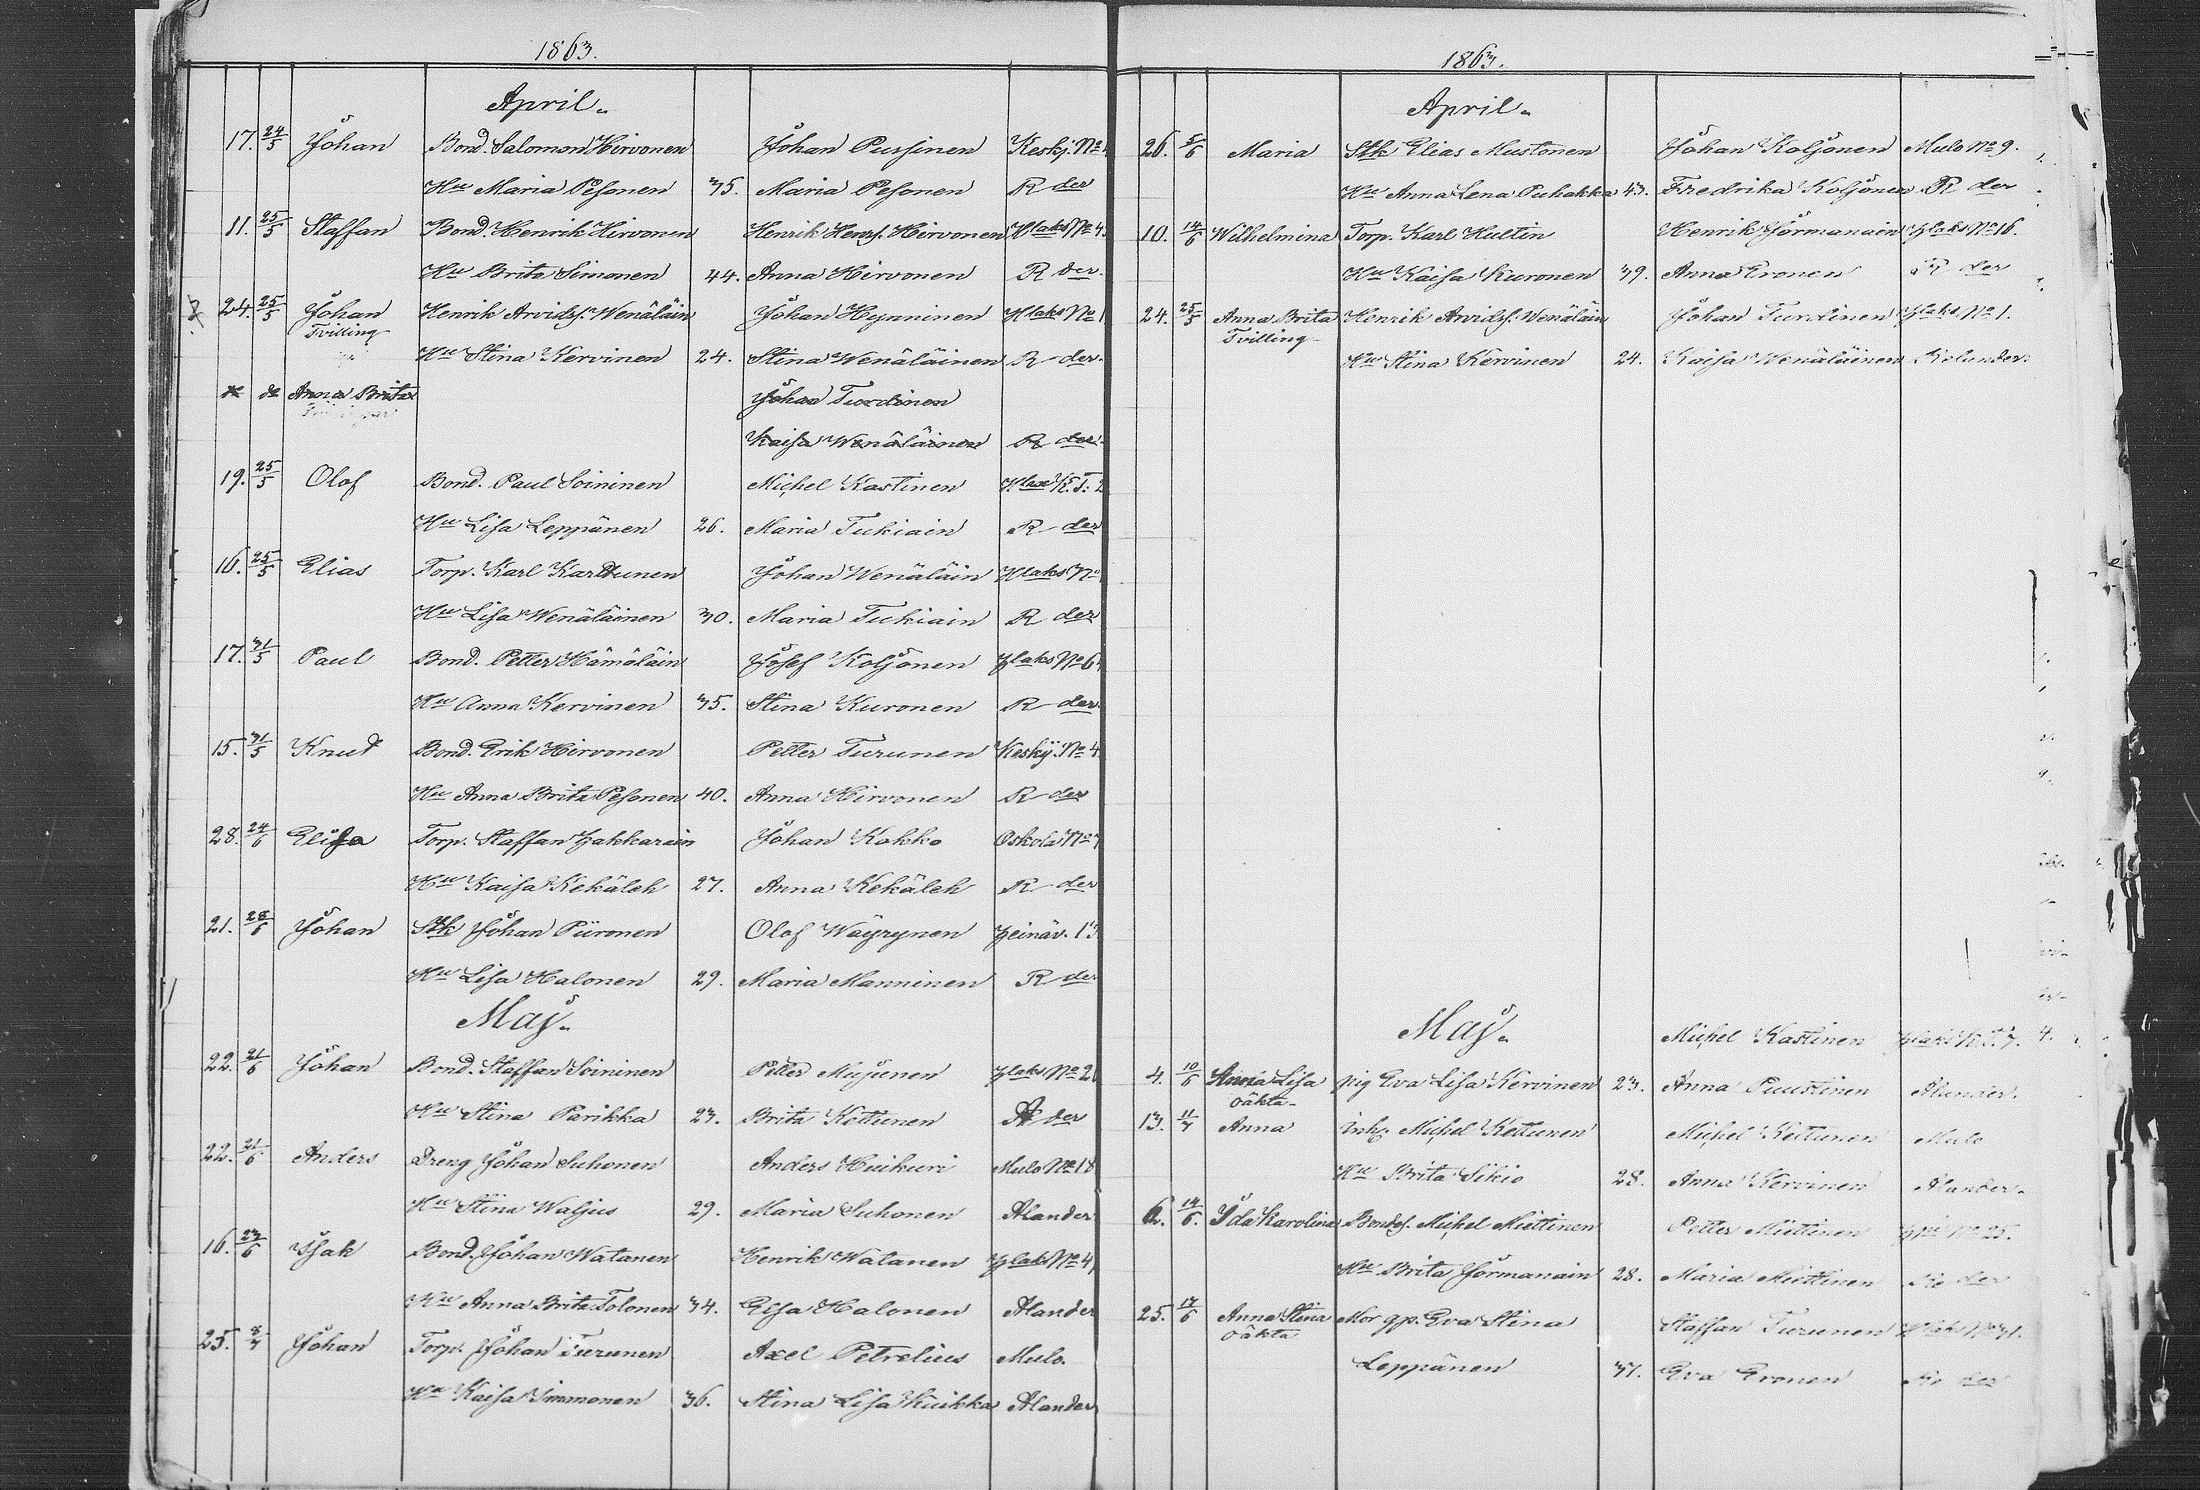 1863.
April.
17. 24/5 Johan Bond. Salomon Hirvonen Johan Pursinen Keskj. No
Hu Maria Pesonen 35. Maria Pesonen R der
11. 25/5 Staffan Bond. Henrik Hirvonen Henrik Henrs. Hirvonen Hlaks No 4
Hu Brita Simonen 44. Anna Hirvonen R der.
24. 25/5 Johan Henrik Arvids. Wenäläin Johan Hynninen Hlaks No 1
Tvilling
Hu Stina Kervinen 24. Stina Wenäläinen R der.
Anna Brita Johan Turdinen
Kaisa Wenäläinen R der.
19. 25/5 Olof Bond. Paul Soininen Michel Kastinen
Hu Lisa Leppänen 26. Maria Tukiain R der
16. 25/5 Elias Torp. Karl Karttunen Johan Wenäläin Hlaks No
Hu Lisa Wenäläinen 30. Maria Tukiain R der
17. 31/5 Paul Bond. Petter Hämäläin Josef Koljonen Hlaks No 6
Hu Anna Kervinen 35. Stina Kuronen R der.
15. 31/5 Knut Bond. Erik Hirvonen Petter Turunen Keskij. No 4.
Hu Anna Brita Pesonen 40. Anna Hirvonen R der
28. 24/6 Elisa Torp. Staffan Hakkarain Johan Kokko Oskola No
Hu Kaisa Kekäleh 27. Anna Kekäleh R der
21. 28/6 Johan Stk Johan Piironen Olof Wäyrynen Heinäv. 13
Hu Lisa Halonen 29. Maria Manninen R der
Maj.
22. 21/6 Johan Bond. Staffan Soininen Petter Mujunen Hlaks No 2
Hu Stina Parikka 23. Brita Kettunen A der
22. 21/6 Anders Dreng Johan Suhonen Anders Huikuri Mulo No 18
Hu Stina Waljus 29. Maria Suhonen Alander
16. 23/6 Isak Bond. Johan Watanen Henrik Watanen Hlaks No 4
Hu Anna Brita Tolonen 34. Elsa Halonen Alander
25. 8/7 Johan Torp. Johan Turunen Axel Petrelius Mulo.
Hu Kaisa Immonen 36. Stina Lisa Kuikka Alander
1863.
April.
26. 5/6 Maria Stk Elias Mustonen Johan Koljonen Mulo No 9.
Hu Anna Lena Puhakka 43. Fredrika Koljonen R der
10. 14/6 Wilhelmina Torp. Karl Hultin Henrik Jormanain Hlaks No 16.
Hu Kaisa Kuronen 39. Anna Eronen R der
24. 25/5 Anna Brita Henrik Arvids. Wenäläin Johan Turdinen Hlaks No 1.
Tvilling
Hu Stina Kervinen 24. Kaisa Wenäläinen
Maj. Michel Kastinen
4. 10/6 Anna Lisa pig Eva Lisa Kervinen 23. Anna Puustinen Alander.
oäkta
13. 11/7 Anna Inh. Michel Kettunen Michel Kettunen Mulo
Hu Brita Sikio 28. Anna Kervinen Alander.
6. 14/6 Ida Karolina Bonds. Michel Miettinen Petter Miettinen No 25.
Hu Brita Jormanain 28. Maria Miettinen R der
25. 17/6 Anna Stina Mor gp. Eva Stina Staffan Turunen
oäkta
Leppänen 37. Eva Eronen R der